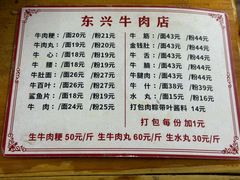 东兴牛肉店
牛肉粳：/面20元 /粉21元
牛肉丸：/面19元 /粉20元
牛 心：/面19元 /粉20元
牛 腰：/面19元 /粉20元
牛肚面：/面26元 /粉27元
牛百叶：/面26元 /粉27元
鲨鱼片：/面18元 /粉19元
牛 肉：/面24元 /粉25元
牛 筋：/面43元 /粉44元
金钱肚：/面43元 /粉44元
牛 舌：/面43元 /粉44元
牛 尾：/面43元 /粉44元
牛腱肉：/面43元 /粉44元
牛 什：/面43元 /粉44元
水 丸：/面15元 /粉16元
打包肉粽带叶酱料 14元
打包 每份加1元
生牛肉粳50元/斤 生牛肉丸60元/斤 生水丸30元/斤